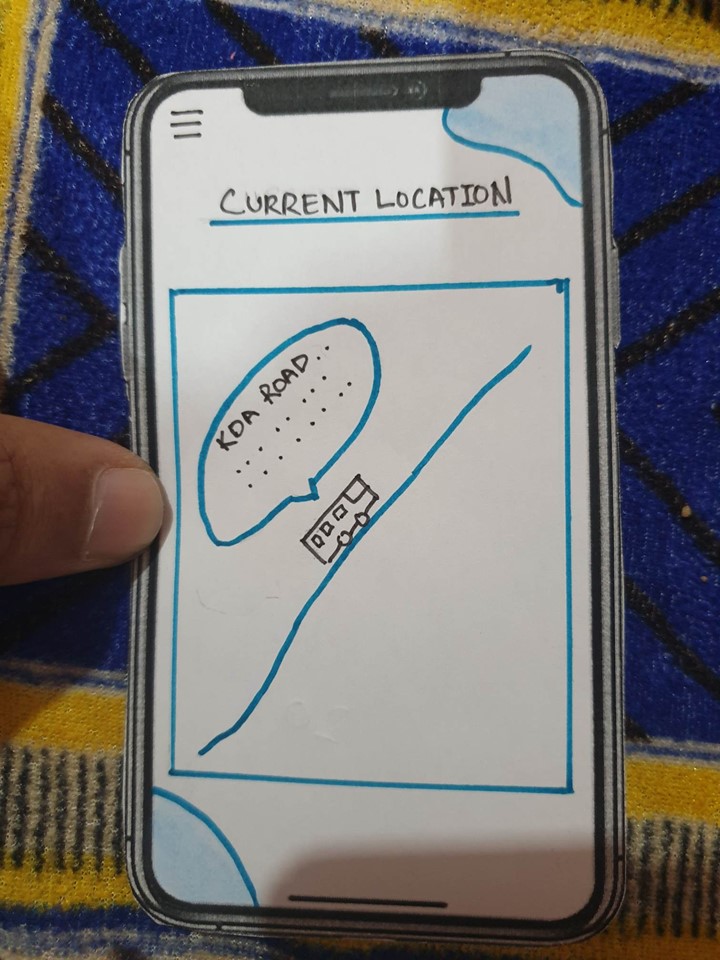 CURRENT LOCATION
KDA ROAD..